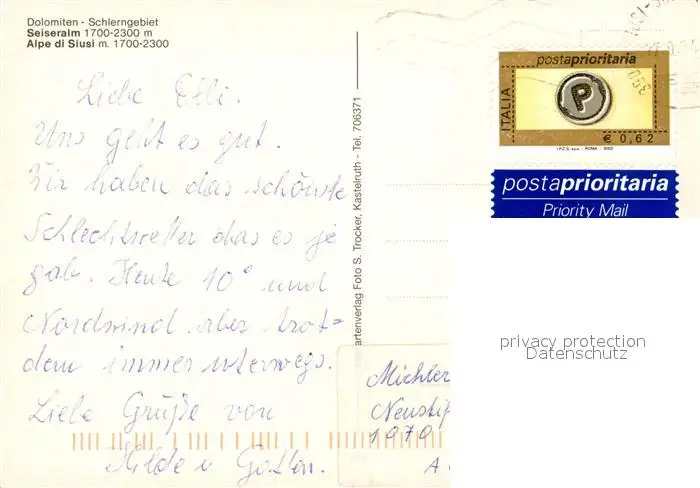 Dolomiten - Schlerngebiet
Seiseralm 1700-2300 m
Alpe di Siusi m. 1700-2300
Liebe Elli.
Uns geht es gut.
Wir haben das schönste
Schlechtwetter das es je
gab. Heute 10° und
Nordwind. aber trotz=
dem immer unterwegs.
Liebe Grüße von
Hilde u
artenverlag Foto S. Trocker, Kastelruth - Tel. 706371
postaprioritaria
ITALIA
P
€ 0,62
I.P.Z.S. S.p.A. - ROMA - 2003
postaprioritaria
Priority Mail
privacy protection
Datenschutz
Michler
Neustif
1070
A